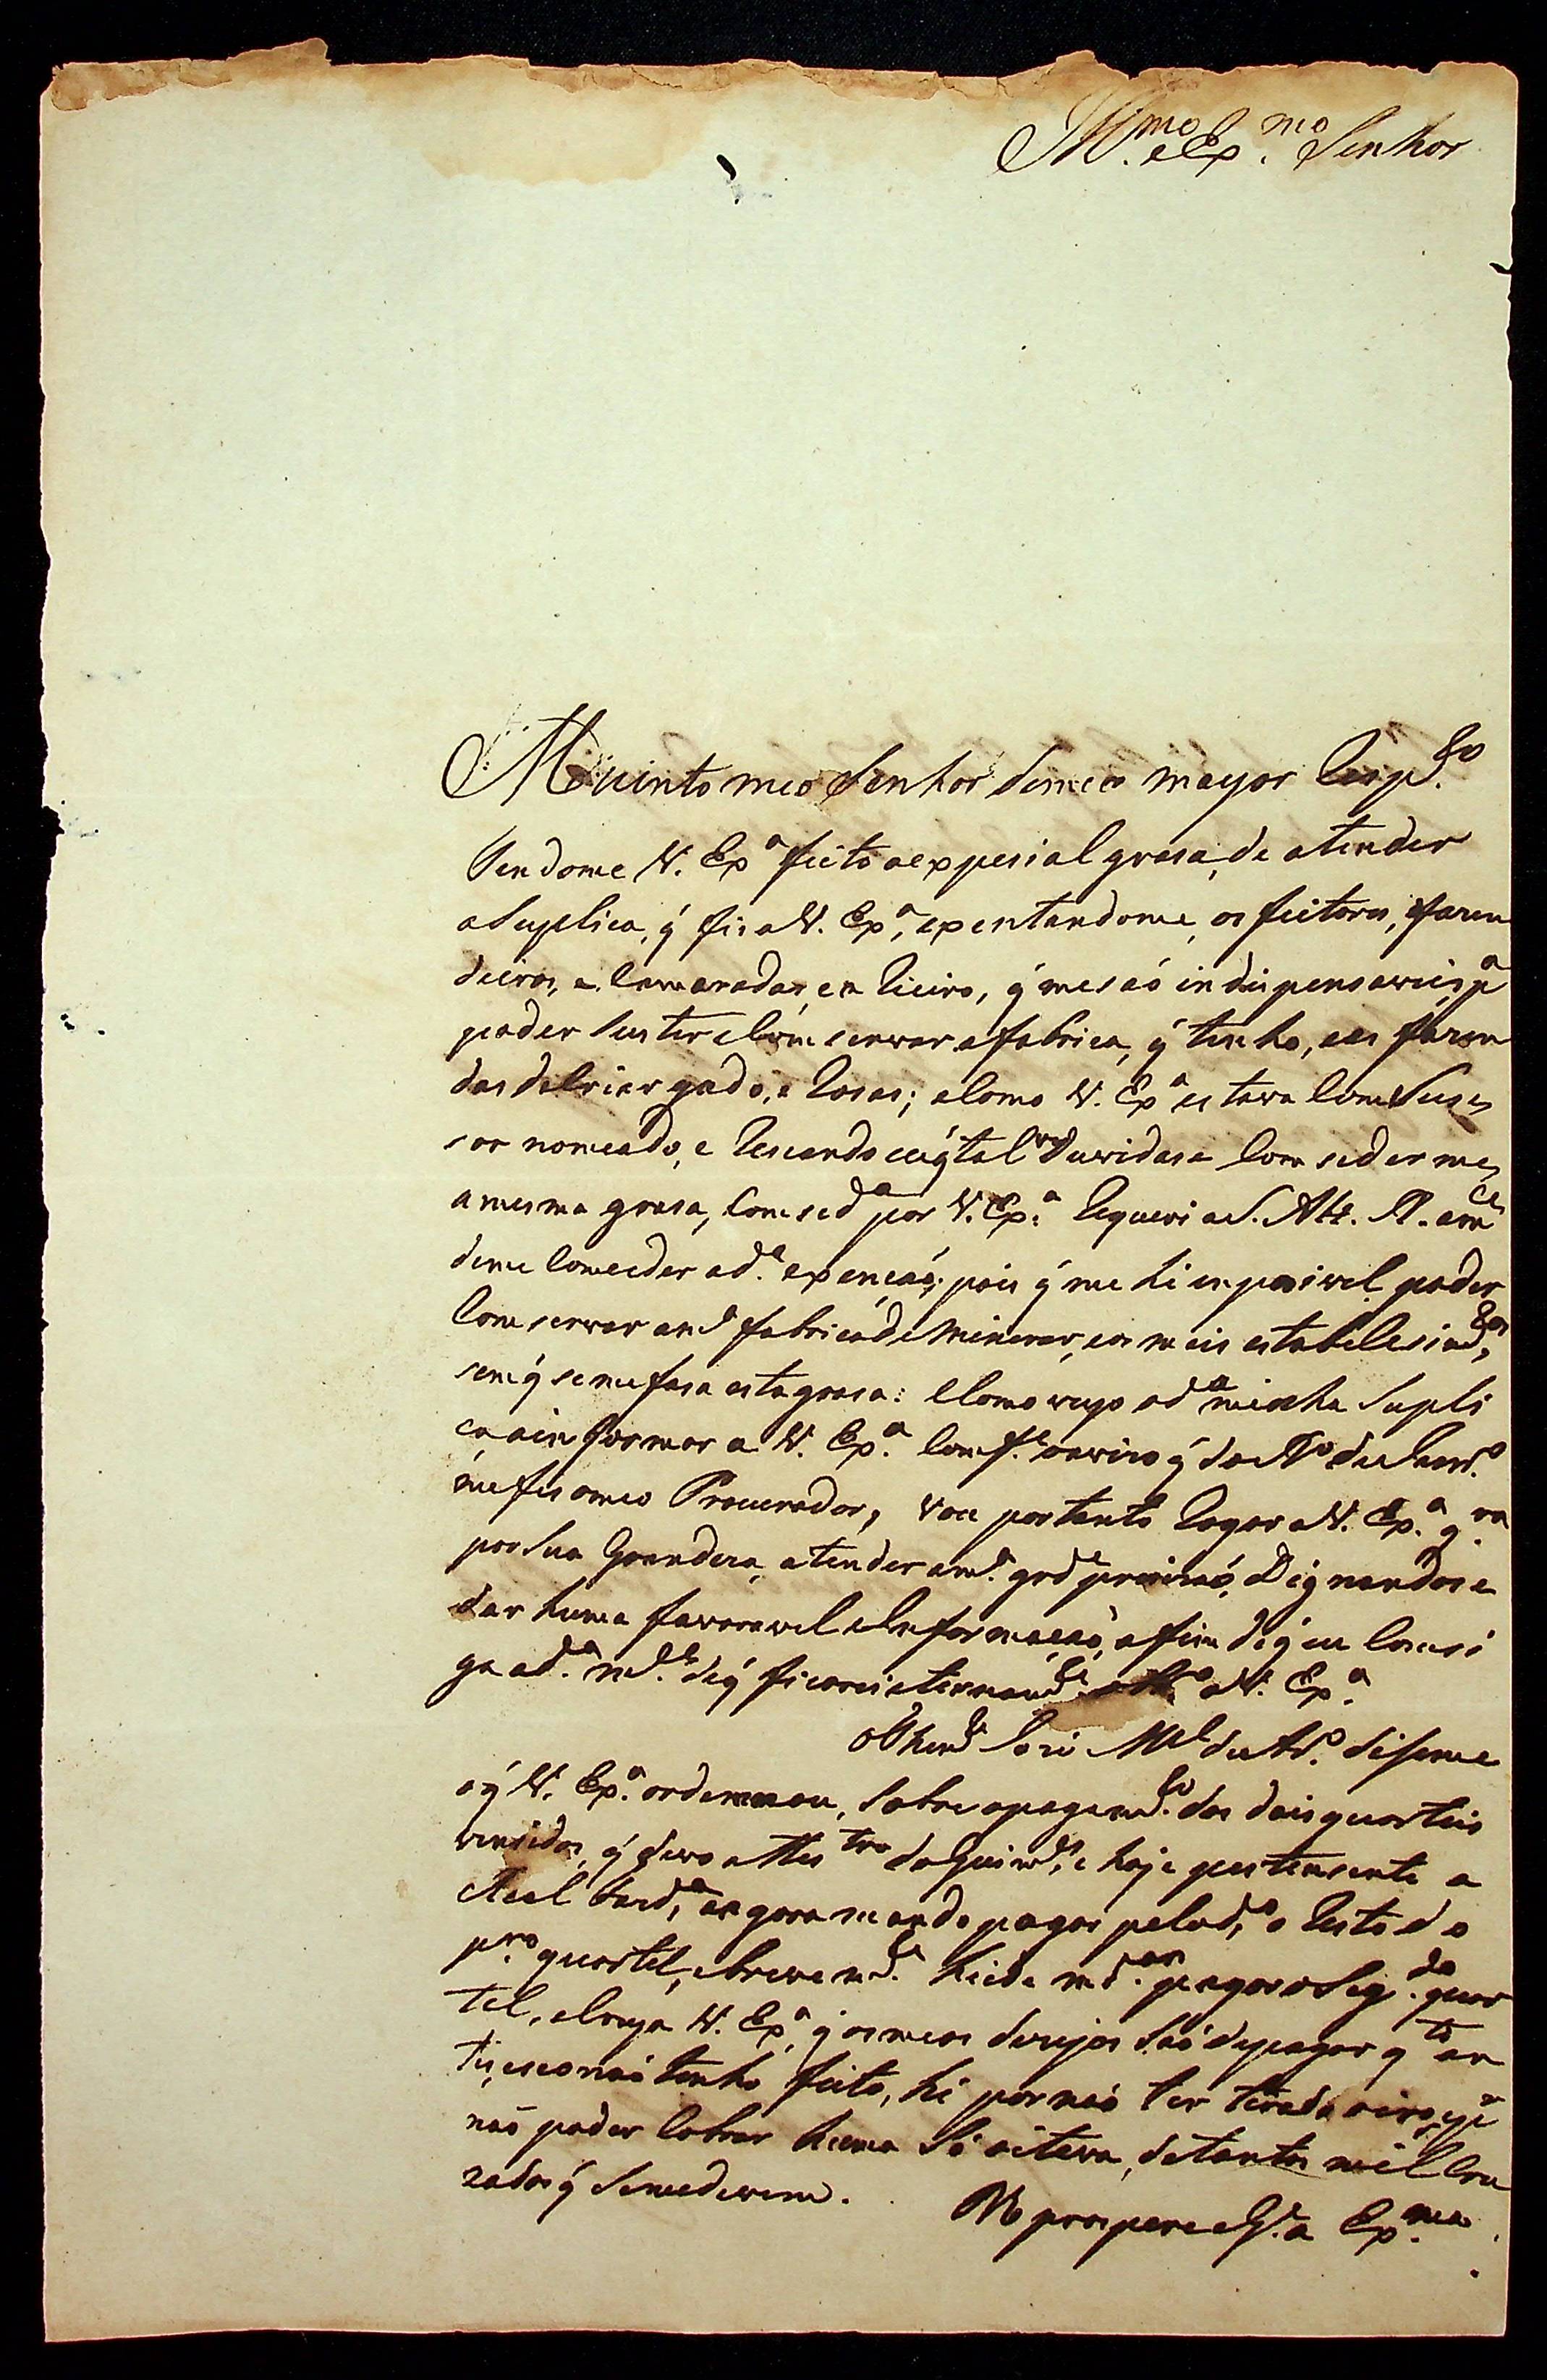 Ill.mo e Ex.mo Senhor
Muinto meo Senhor de meo mayor Resp.to
Sendome V. Ex.a feito a expesial grasa, de atender
a Suplica, q̃ fis a V. Ex.a, expentandome, os feitores, fazen
deiros, e Camaradas, e a Cieiro, q̃ me saó indispensaveis, p.a
poder suster e Comservar a fabrica, q̃ tenho, e as fazen
das de Criar gado, e Rosas; e Como V. Ex.a estava Com Suse
sor nomeado, e Reseando eu q̃ tal vez Duvidase Comsederme,
a mesma grasa, Comsed.a por V. Ex.a Requeri a S. Alt. R. a m.ce
de me Comceder a d.a expencaó; pois q̃ me hé inposivel poder
Comservar a m.a fabrica de Minerar, e os mais estabelesim.tos,
sem q̃ se me fasa esta grasa: e Como veyo a d.a minha Supli
ca a informar a V. Ex.a Comf.e o avizo q̃ do R.o de Janr.o
me fes o meo Procurador, vou portanto Rogar a V. Ex.a q.ra
por Sua Grandeza, atender a m.a gr.de precizaó, Dignandose
dar huma favoravel Informacaó, a fim de q̃ eu Consi
ga a d.a m.ce de q̃ ficarei eternam.te a V. Ex.a
O Then.te Jozé M.el de Alm.da diseme
o q̃ V. Ex.a ordennou, Sobre o pagam.to dos dois quarteis
vensidos, q̃ devo a Mes.tre da Guim.es, e hoje pertensente a
Real Fazd.a, agora mando pagar pelo d.o o Resto do
pr.o quartel, e brevem.te heide m.dar pagar o Seg.do quar
tel, e Creya V. Ex.a q̃ os meos dezejos Saó de pagar q.to an
tes, e se o naó tenho feito, hé por naó ter tirado oiro, e p.r
naó poder Cobrar huma Só oitava, de tantos mil Cru
zados q̃ Se me devem.
N. prospere e G.e a Ex.ma